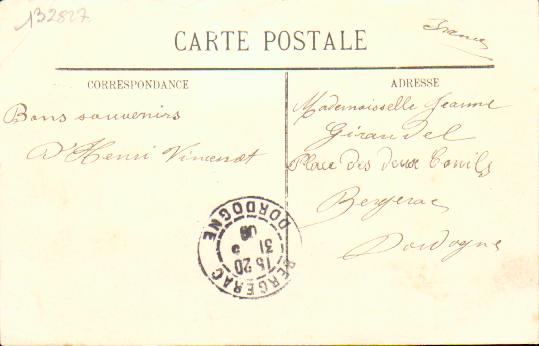 132827
France
CARTE POSTALE
CORRESPONDANCE
Bons souvenirs
D'Henri Vincenot
ADRESSE
Mademoisselle Jeanne
Girandel
Place des deux Conils
Bergerac
Dordogne
BERGERAC
15 20
31
DORDOGNE